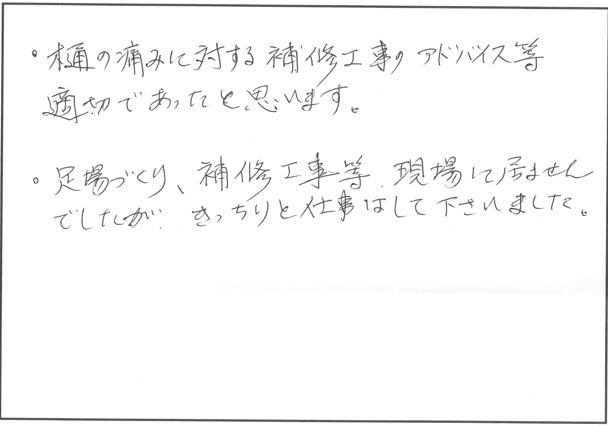 ・樋の痛みに対する補修工事のアドバイス等
適切であったと思います。
。足場づくり、補修工事等、現場に居ません
でしたが、きっちりと仕事はして下さいました。